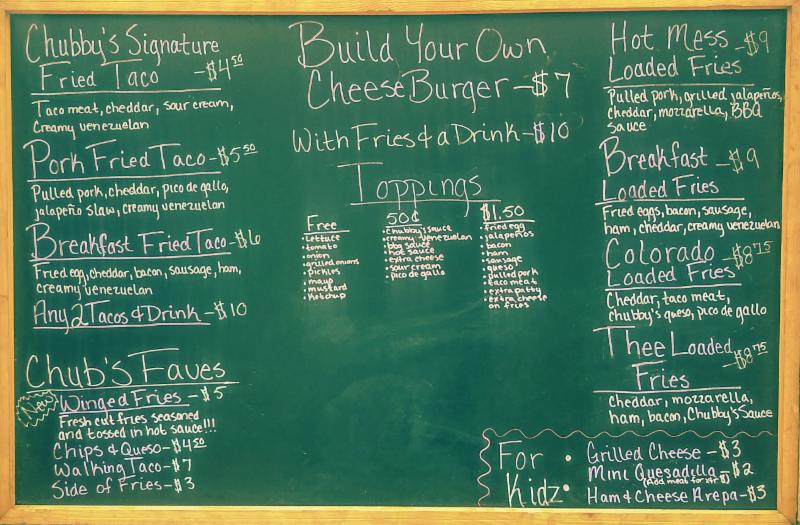 Chubby's Signature
Fried Taco -$4.50
Taco meat, cheddar, sour cream,
Creamy venezuelan
Pork Fried Taco-$5.50
Pulled pork, cheddar, pico de gallo,
jalapeño slaw, creamy venezuelan
Breakfast Fried Taco-$6
Fried egg, cheddar, bacon, sausage, ham,
creamy venezuelan
Any 2 Tacos & Drink-$10
Chub's Faves
New
Winged Fries -$5
Fresh cut fries seasoned
and tossed in hot sauce!!!
Chips & Queso-$4.50
Walking Taco-$7
Side of Fries-$3
Build Your Own
CheeseBurger-$7
With Fries & a Drink-$10
Toppings
Free
• Lettuce
• tomato
• onion
• grilled onions
• pickles
• mayo
• mustard
• Ketchup
50¢
• Chubby's sauce
• creamy venezuelan
• bbq sauce
• hot sauce
• extra cheese
• sour cream
• pico de gallo
$1.50
• fried egg
• jalapeños
• bacon
• ham
• sausage
• queso
• pulled pork
• taco meat
• extra patty
• extra cheese
on fries
Hot Mess -$9
Loaded Fries
Pulled pork, grilled jalapeños,
cheddar, mozzarella, BBQ
sauce
Breakfast -$9
Loaded Fries
Fried eggs, bacon, sausage,
ham, cheddar, creamy venezuelan
Colorado -$8.75
Loaded Fries
Cheddar, taco meat,
chubby's queso, pico de gallo
Thee Loaded -$8.75
Fries
cheddar, mozzarella,
ham, bacon, Chubby's Sauce
For
Kidz
• Grilled Cheese -$3
Mini Quesadilla -$2
(Add meat for
• Ham & Cheese Arepa-$3